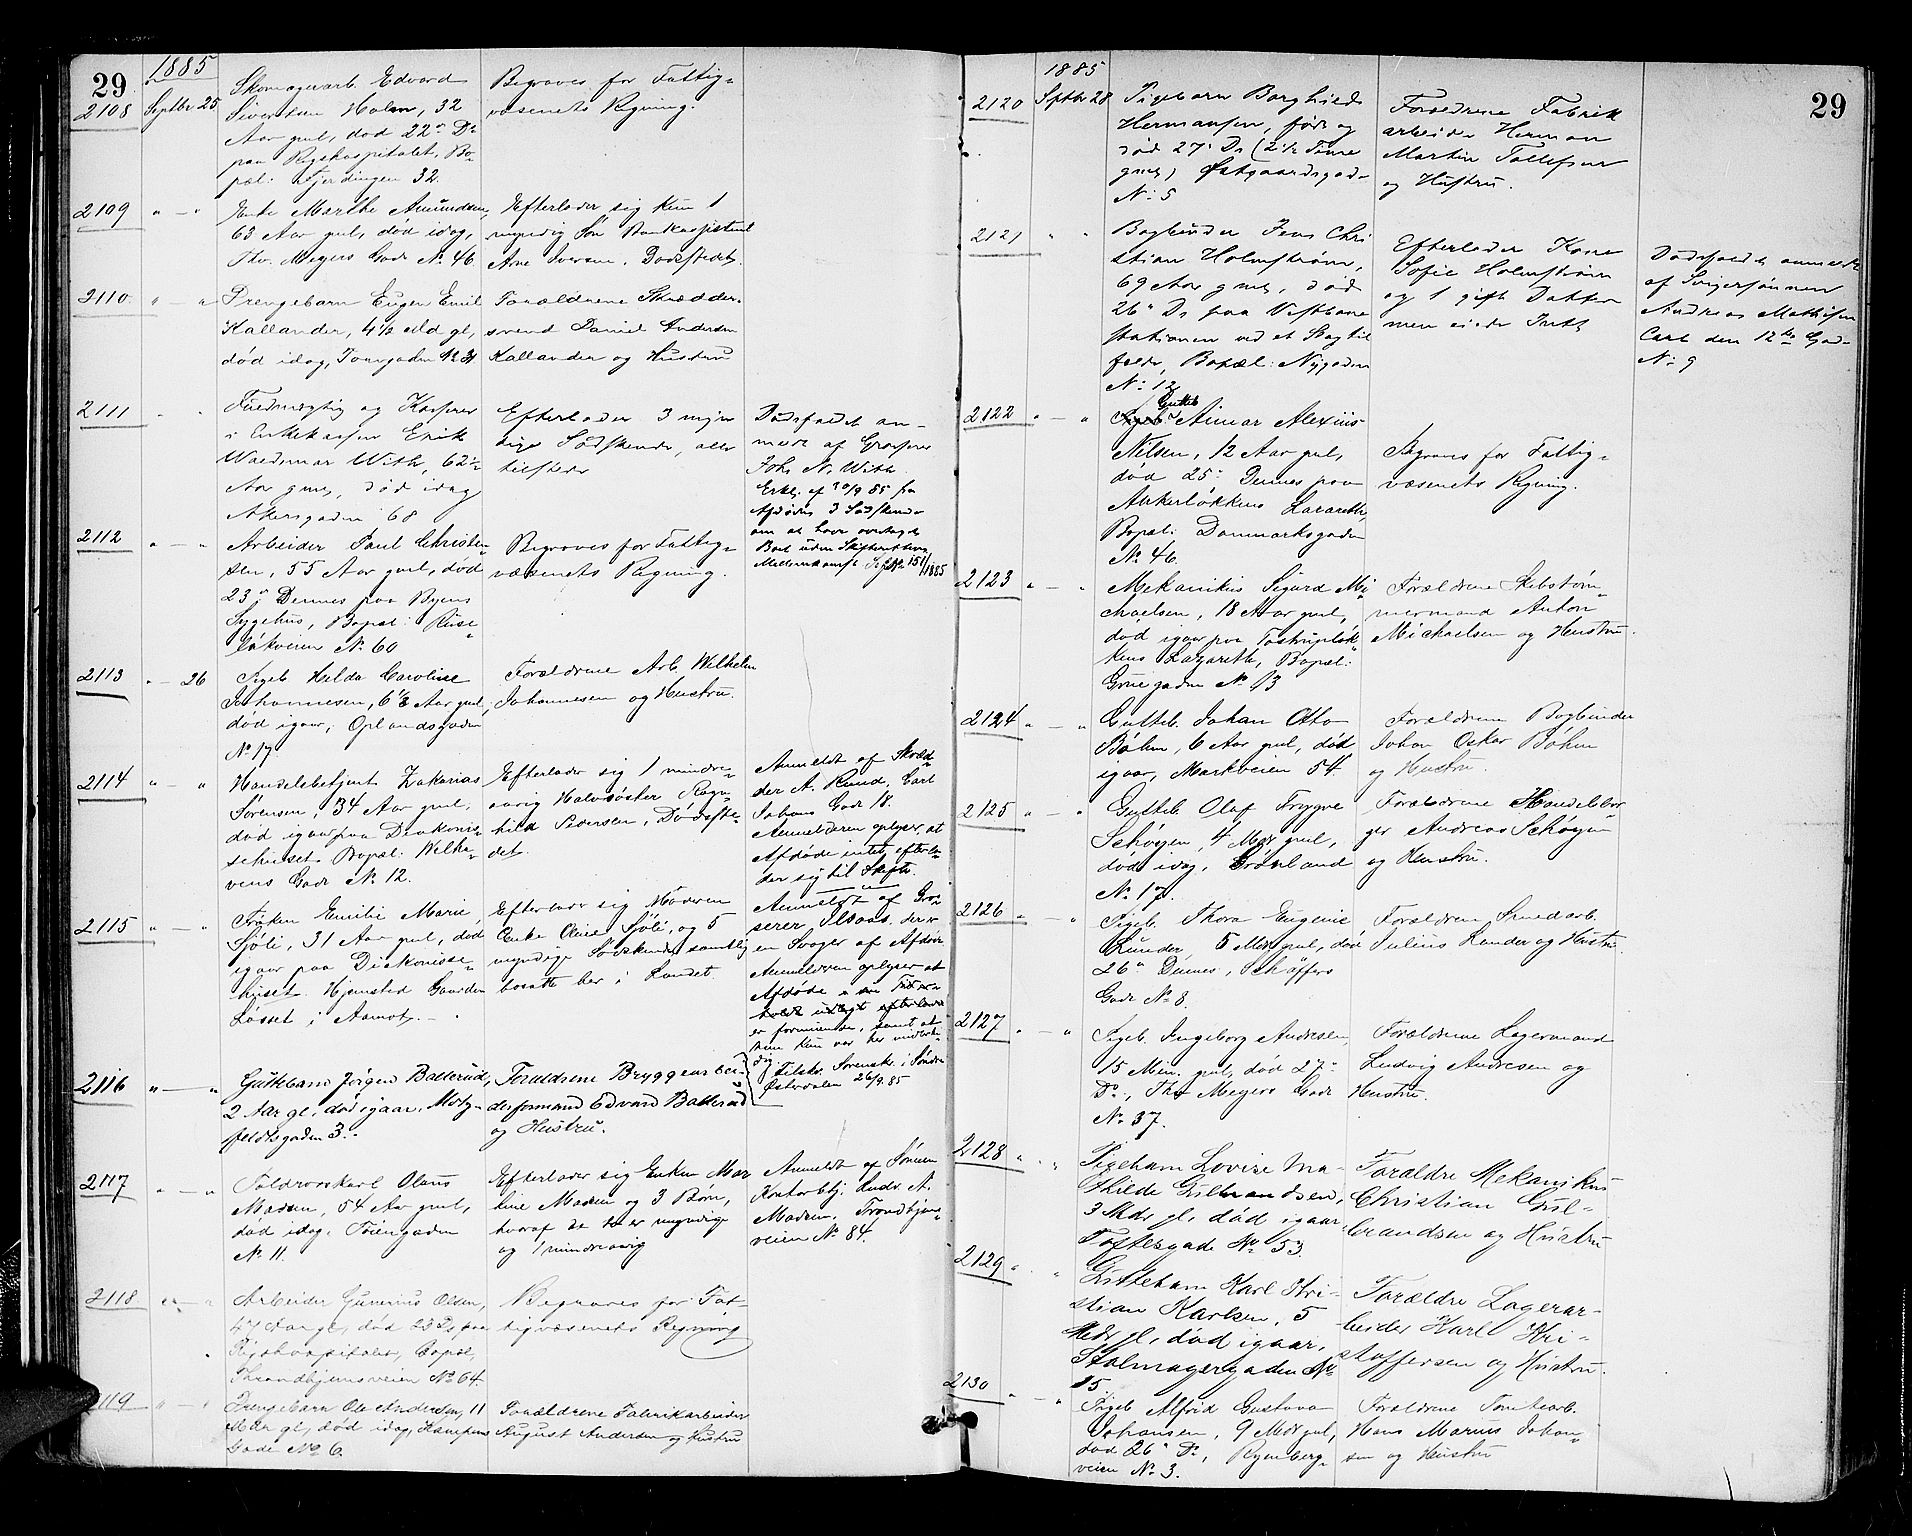 29
1885
2108 Septbr 25 Skomagerarb. Edvard
Sivertsen Holm, 32
Aar gml, død 22de Ds
paa Rigshospitalet, Bo-
pæl: Fjerdingen 32.
Begraves for Fattig-
væsenets Regning.
2109 " — " Enke Marthe Amundsen,
63 Aar gml, død idag,
Thv. Meyers Gade No 46
Efterlader sig kun 1
myndig Søn
Arne Iversen. Dødsstedet.
2110 " — " Drengebarn Eugen Emil
Kallander, 4½ Md gl,
død idag, No 31
Forældrene Skrædder-
svend Daniel Andersen
Kallander og Hustru
2111 " " Fuldmægtig og Kasserer
i Enkekassen Erik
Waldemar With, 62½
Aar gml, død idag
Akersgaden 68
Efterlader 3 myn-
dige Sødskende, alle
tilstede
Dødsfaldet an-
meldt af Grosserer
Johs N. With.
Erkl. af 30/9 85 fra
Afdødes 3 Sødskende
om at have overtaget
Boet uden Skifterettens
Mellemkomst
2112 " — " Arbeider Paul Christen-
sen, 55 Aar gml, død
23de Dennes paa Byens
Sygehus, Bopæl: Ruse-
løkveien No 60
Begraves for Fattig-
væsenets Regning.
2113 " — 26 Pigeb. Hilda Caroline
Johannesen, 6½ Aar gml,
død igaar, Oplandsgaden
No 17.
Forældrene Arb. Wilhelm
Johannesen og Hustru.
2114 " — " Handelsbetjent Zakarias
Sørensen, 34 Aar gml,
død igaar paa Diakonis-
sehuset. Bopæl: Welha-
vens Gade No 12.
Efterlader sig 1 mindre-
aarig Halvsøster Ragn-
hild Pedersen, Dødsste-
det.
Anmeldt af Skræd-
der A. Rund, Carl
Johans Gade 18.
Anmelderen oplyser, at
Afdøde intet efterla-
der sig til Skifte.
2115 " — " Frøken Emilie Marie
Sjøli, 31 Aar gml, død
igaar paa Diakonisse-
huset. Hjemsted Gaarden
Løsset i Aamot. —
Efterlader sig Moderen
Enke Oline Sjøli, og 5
myndige Sødskende, samtlig
bosatte her i Landet
Anmeldt af Gros-
serer Ilsaas, der er
en Svoger af Afdøde
Anmelderen oplyser at
Afdøde
er formuende, samt at
hun kun var her midlerti-
dig.
Tilskr. Sorenskr. i Søndre
Østerdalen 26/9. 85
2116 " — " Guttebarn Jørgen Ballerud,
2 Aar gl, død igaar,
feldtsgaden 3. -
Forældrene Bryggeriarbei-
derformand Edvard Ballerud
og Hustru.
2117 " — " Toldrorskarl Olaus
Madsen, 54 Aar gml,
død idag. Tøiengaden
No 11.
Efterlader sig Enken Mar
line Madsen og 3 Børn,
hvoraf de to er myndige
og 1 mindreaarig
Anmeldt af Sønnen
Kontorbtj. Ludv. A.
Madsen. Trondhjems-
veien No 84.
2118 " — " Arbeider Gunerius Olsen,
47 Aar gl, død 23 Ds paa
Rigshospitalet, Bopæl,
Throndhjemsveien No 64.
Begraves for Fat-
tigvæsenets Regning
2119 " — " Drengebarn Ole Andersen, 11
Mdr gl, død idag, Kampens
Gade No 6.
Forældrene Fabrikarbeider
August Andersen og Hustru
29
1885
2120 Septbr 28 Pigebarn Borghild
Hermansen, født og
død 27de Ds (2½ Time
gml) Østgaardsgade
No 5
Forældrene Fabrik
arbeider Herman
Martin Tollefsen
og Hustru.
2121 " " Bogbinder Jens Chri
stian Holmstrøm,
69 Aar gml, død
26de Ds paa Vestbane
stationen ved et Slagtil
fælde, Bopæl: Nygaden
No 12
Efterlader Kone
Sofie Holmstrøm
og 1 gift Datter
men eiede Intet
Dødsfaldet anmeldt
af Svigersønnen
Andreas Mathisen
Carl den 12te Gade
No 9
2122 " — " Gutteb. Aimar Alexius
Nilsen, 12 Aar gml,
død 25de Dennes paa
Ankerløkkens Lazareth,
Bopæl: Danmarksgaden
No 46.
Begraves for Fattig-
væsenets Regning.
2123 " — " Mekanikus Sigurd Mi-
chaelsen, 18 Aar gml,
død igaar paa Tostrupløk-
kens Lazareth, Bopæl:
Gruegaden No 13
Forældrene Skibstøm-
mermand Anton
Michaelsen og Hustru.
2124 " — " Gutteb. Johan Otto
Bøhm, 6 Aar gml, død
igaar, Markveien 54.
Forældrene Bogbinder
Johan Oskar Bøhm
og Hustru.
2125 " — " Gutteb. Olaf Trygve
Schøyen, 4 Mdr gml,
død idag, Grønland
No 17.
Forældrene Handelsbor
ger Andreas Schøyen
og Hustru.
2126 " — " Pigeb. Thora Eugenie
Lunder, 5 Mdr gml, død
26de Dennes, Schøffers
Gade No 8.
Forældrene Smedarb.
Julius Lunder og Hustru.
2127 " — " Pigeb. Ingeborg Andresen,
15 Min. gml, død 27de
Ds, Thv Meyers Gade
No 37.
Forældrene Lagermand
Ludvig Andresen og
Hustru.
2128 " " Pigebarn Lovise Ma-
thilde Gulbrandsen,
3 Mdr gl, død igaar
Toftesgade No 53.
Forældre Mekanikus
Christian Gul-
brandsen og Hustru
2129 " " Guttebarn Karl Kri-
stian Karlsen, 5
Mdr gl, død igaar,
Stolmagergaden No
15.
Forældre Lagerar-
beider Karl Kri-
stoffersen og Hustru.
2130 " — " Pigeb. Alfrid Gustava
Johansen, 9 Mdr gml,
død 26de Ds, Ryenberg-
veien No 3.
Forældrene Tomtearb.
Hans Marius Johan-
sen og Hustru